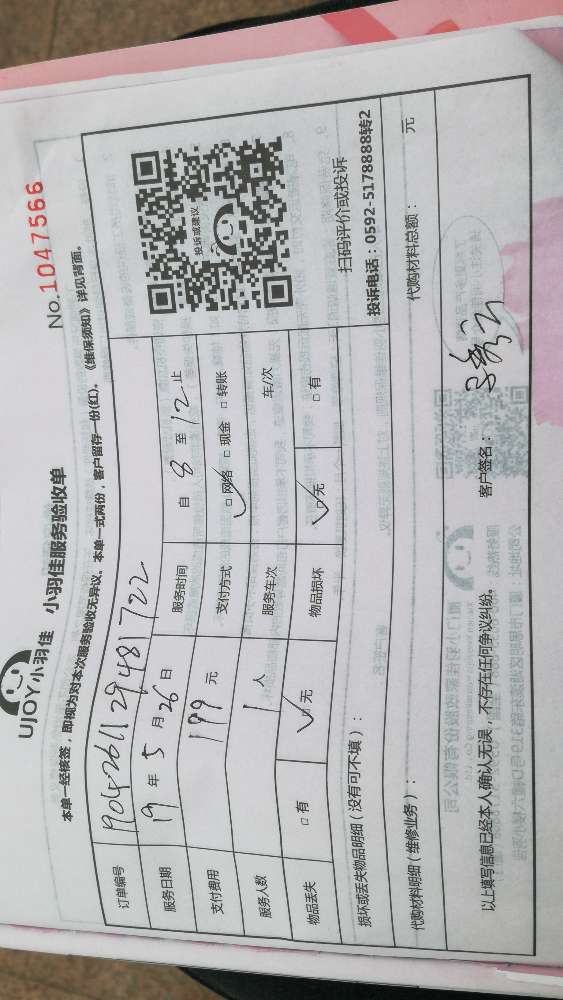 UJOY小羽佳 小羽佳服务验收单
No.1047566
本单一经核签，即视为对本次服务验收无异议。本单一式两份，客户留存一份(红)。《维保须知》详见背面。
订单编号 1904261129481722
服务日期 19 年 5 月 26 日 服务时间 自 8 至 12 止
支付费用 199 元 支付方式 □网络 □现金 □转账
服务人数 1 人 服务车次 车/次
物品丢失 □有 □无 物品损坏 □无 □有
投诉或建议
扫码评价或投诉
投诉电话：0592-5178888转2
损坏或丢失物品明细（没有可不填）：
代购材料明细（维修业务）： 代购材料总额： 元
以上填写信息已经本人确认无误，不存在任何争议纠纷。 客户签名：